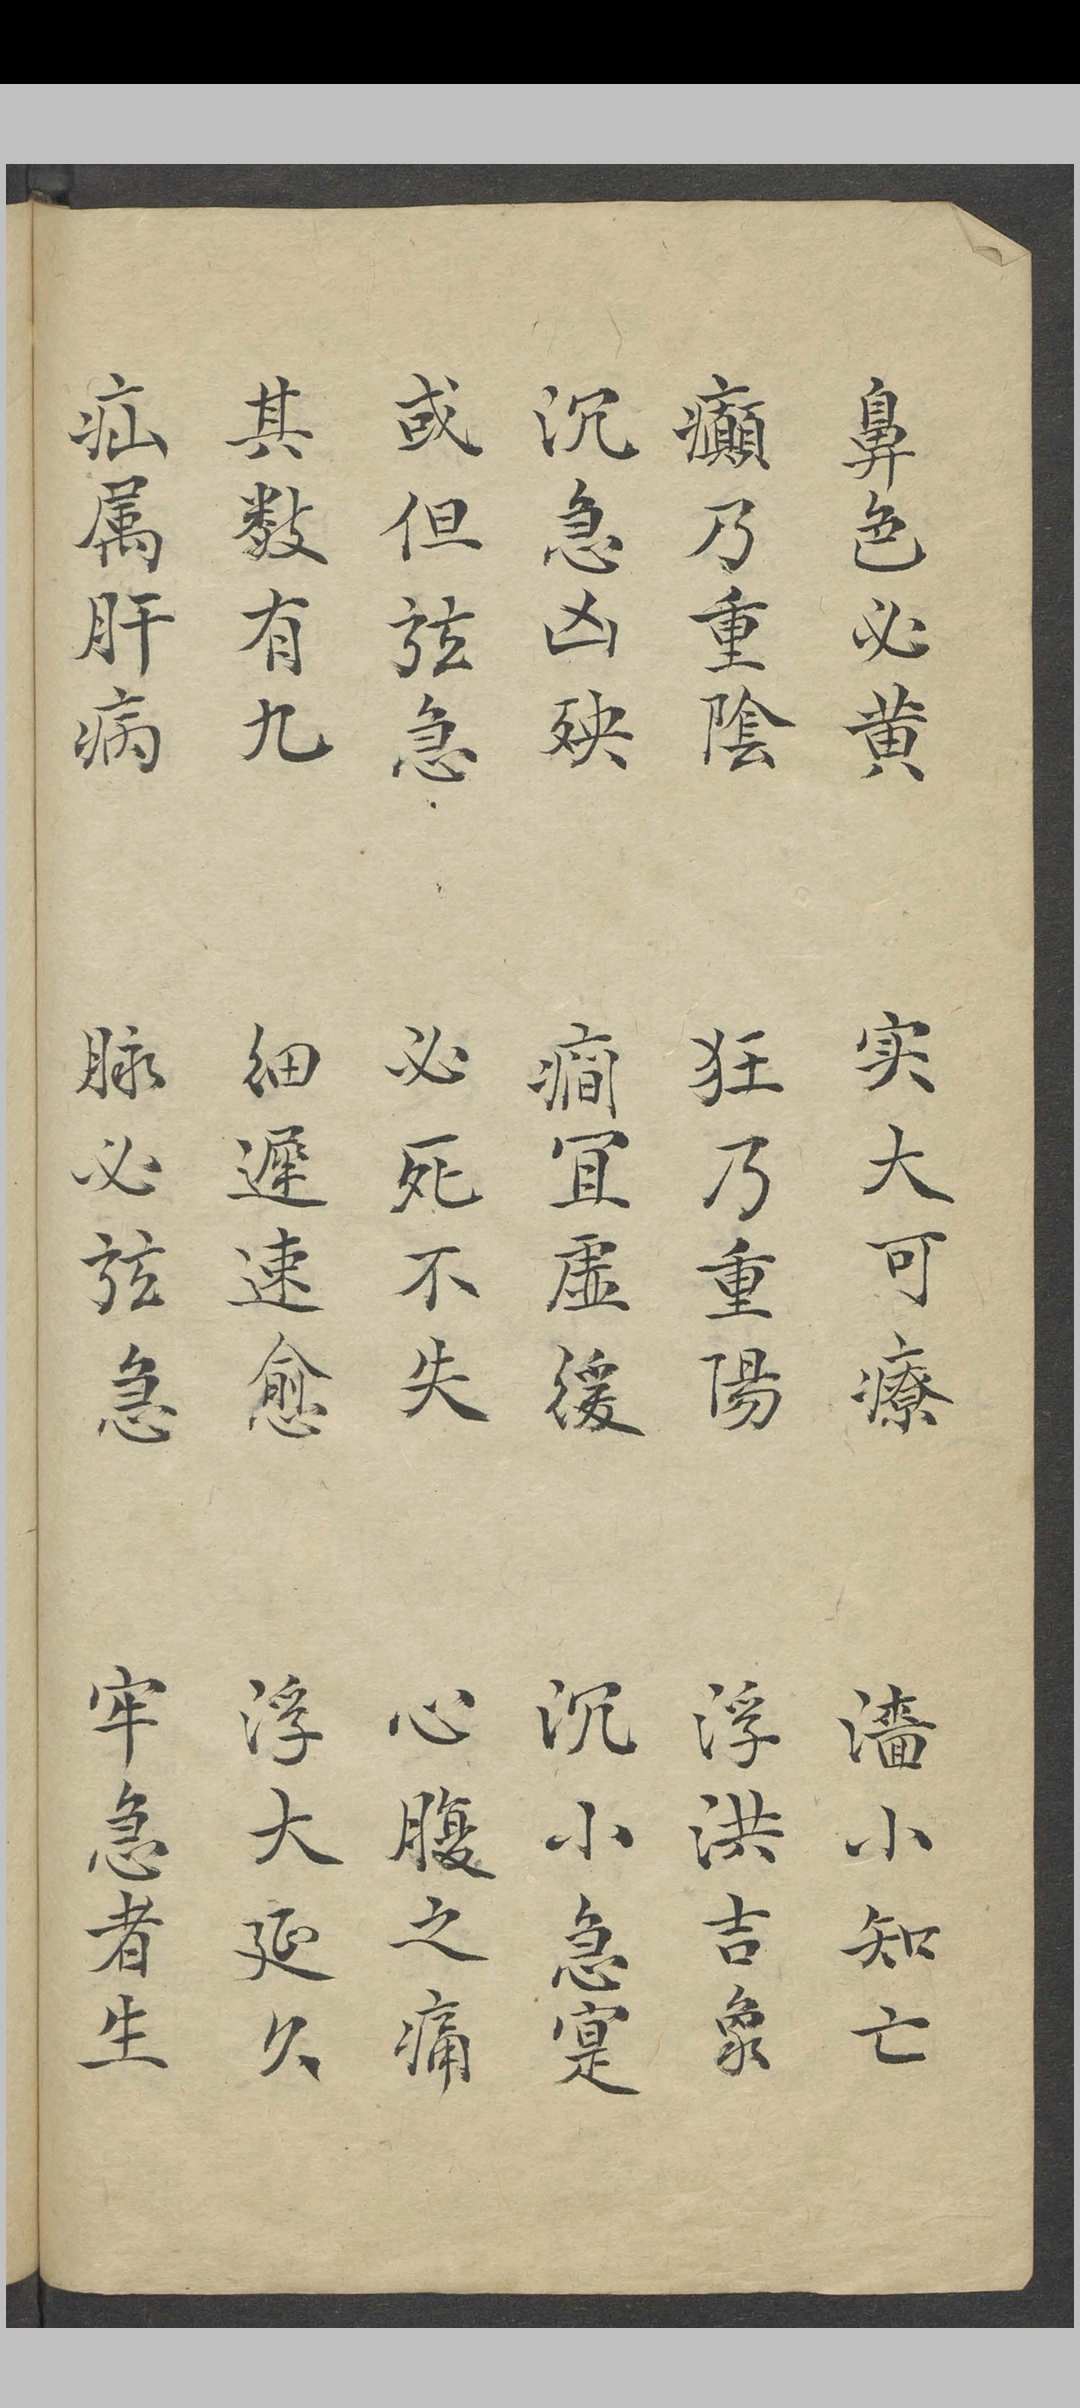 鼻色必黄 实大可療 濇小知亡
癲乃重陰 狂乃重陽 浮洪吉象
沉急凶殃 癎冝虚緩 沉小急寔
或但弦急 必死不失 心腹之痛
其数有九 细遲速愈 浮大延久
疝属肝病 脉必弦急 牢急者生